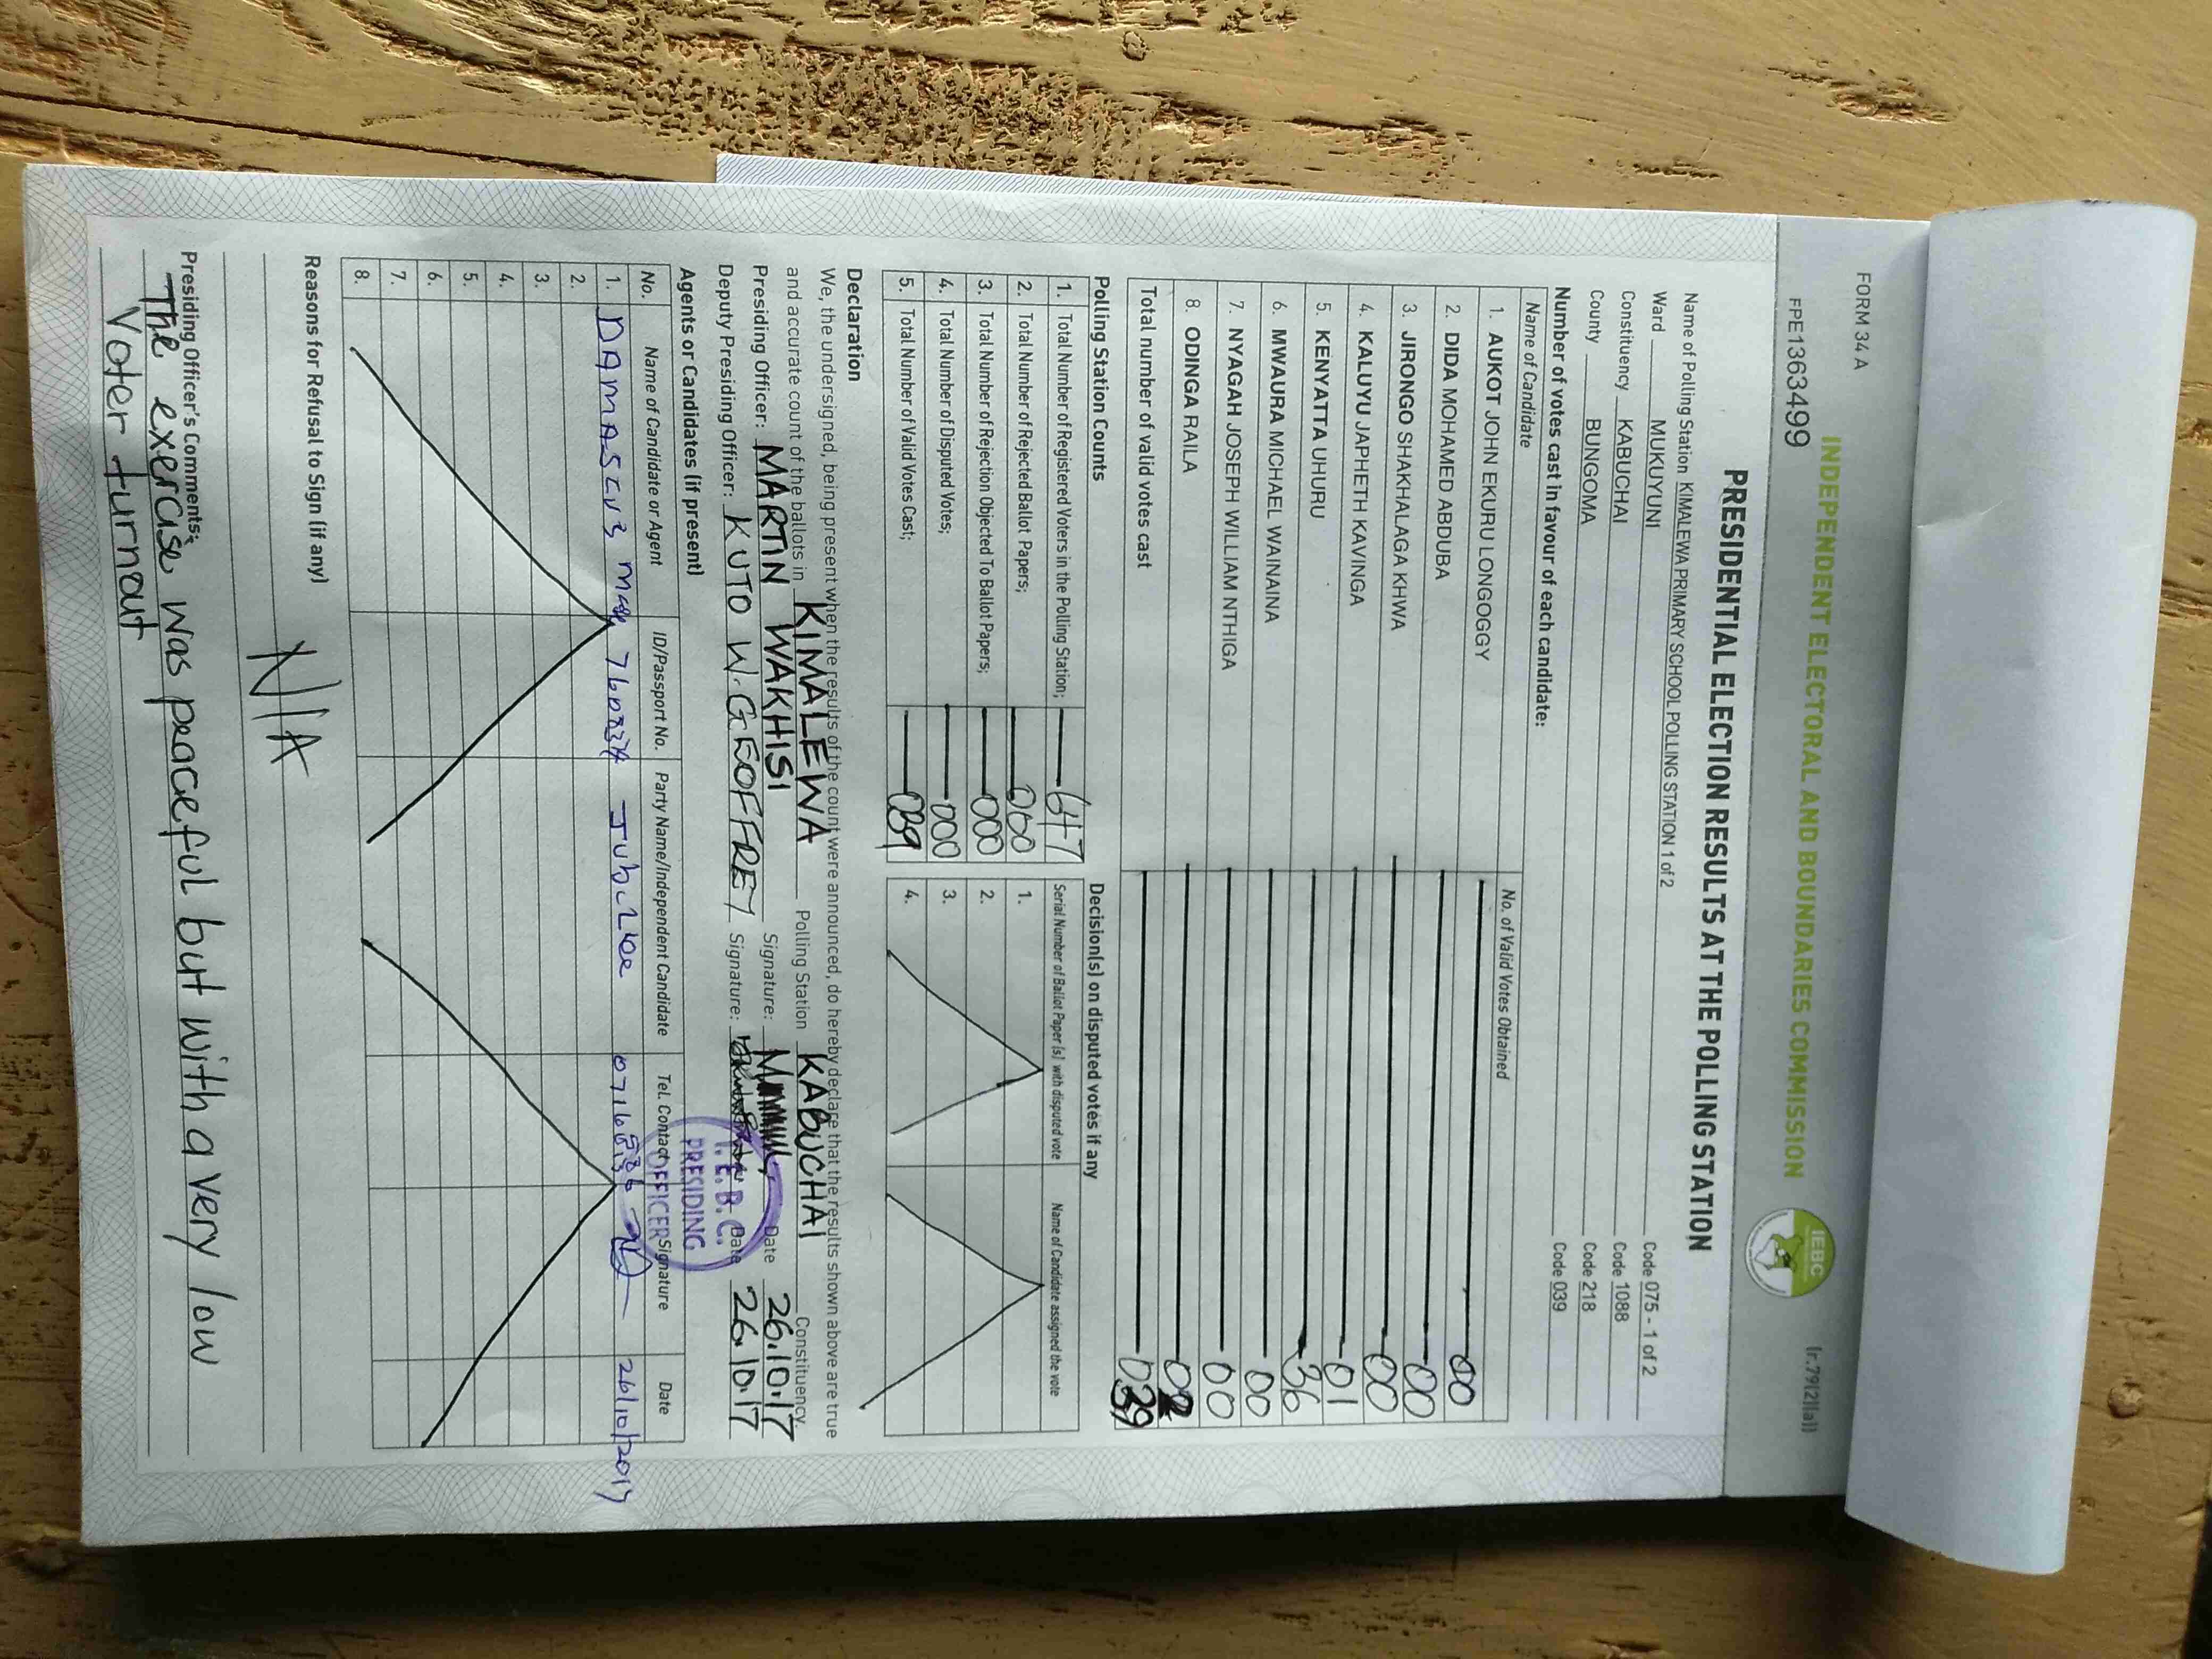 FORM 34 A
(r.79(2)(a))
FPE1363499
INDEPENDENT ELECTORAL AND BOUNDARIES COMMISSION
IEBC
PRESIDENTIAL ELECTION RESULTS AT THE POLLING STATION
Name of Polling Station KIMALEWA PRIMARY SCHOOL POLLING STATION 1 of 2 Code 075 - 1 of 2
Ward MUKUYUNI Code 1088
Constituency KABUCHAI Code 218
County BUNGOMA Code 039
Number of votes cast in favour of each candidate:
Name of Candidate No. of Valid Votes Obtained
1. AUKOT JOHN EKURU LONGOGGY 00
2. DIDA MOHAMED ABDUBA 00
3. JIRONGO SHAKHALAGA KHWA 00
4. KALUYU JAPHETH KAVINGA 01
5. KENYATTA UHURU 36
6. MWAURA MICHAEL WAINAINA 00
7. NYAGAH JOSEPH WILLIAM NTHIGA 00
8. ODINGA RAILA 02
Total number of valid votes cast 039
Polling Station Counts
1. Total Number of Registered Voters in the Polling Station; 647
2. Total Number of Rejected Ballot Papers; 000
3. Total Number of Rejection Objected To Ballot Papers; 000
4. Total Number of Disputed Votes; 000
5. Total Number of Valid Votes Cast; 039
Decision(s) on disputed votes if any
Serial Number of Ballot Paper (s) with disputed vote Name of Candidate assigned the vote
1.
2.
3.
4.
Declaration
We, the undersigned, being present when the results of the count were announced, do hereby declare that the results shown above are true
and accurate count of the ballots in KIMALEWA Polling Station KABUCHAI Constituency.
Presiding Officer: MARTIN WAKHISI Signature: Date 26.10.17
Deputy Presiding Officer: KUTO W. GEOFFREY Signature: Date 26.10.17
I.E.B.C.
PRESIDING
OFFICER
Agents or Candidates (if present)
No. Name of Candidate or Agent ID/Passport No. Party Name/Independent Candidate Tel. Contact Signature Date
1. DAMASCUS Jubilee 26/10/2017
2.
3.
4.
5.
6.
7.
8.
Reasons for Refusal to Sign (if any)
N/A
Presiding Officer's Comments:
The exercise was peaceful but with a very low
Voter turnout